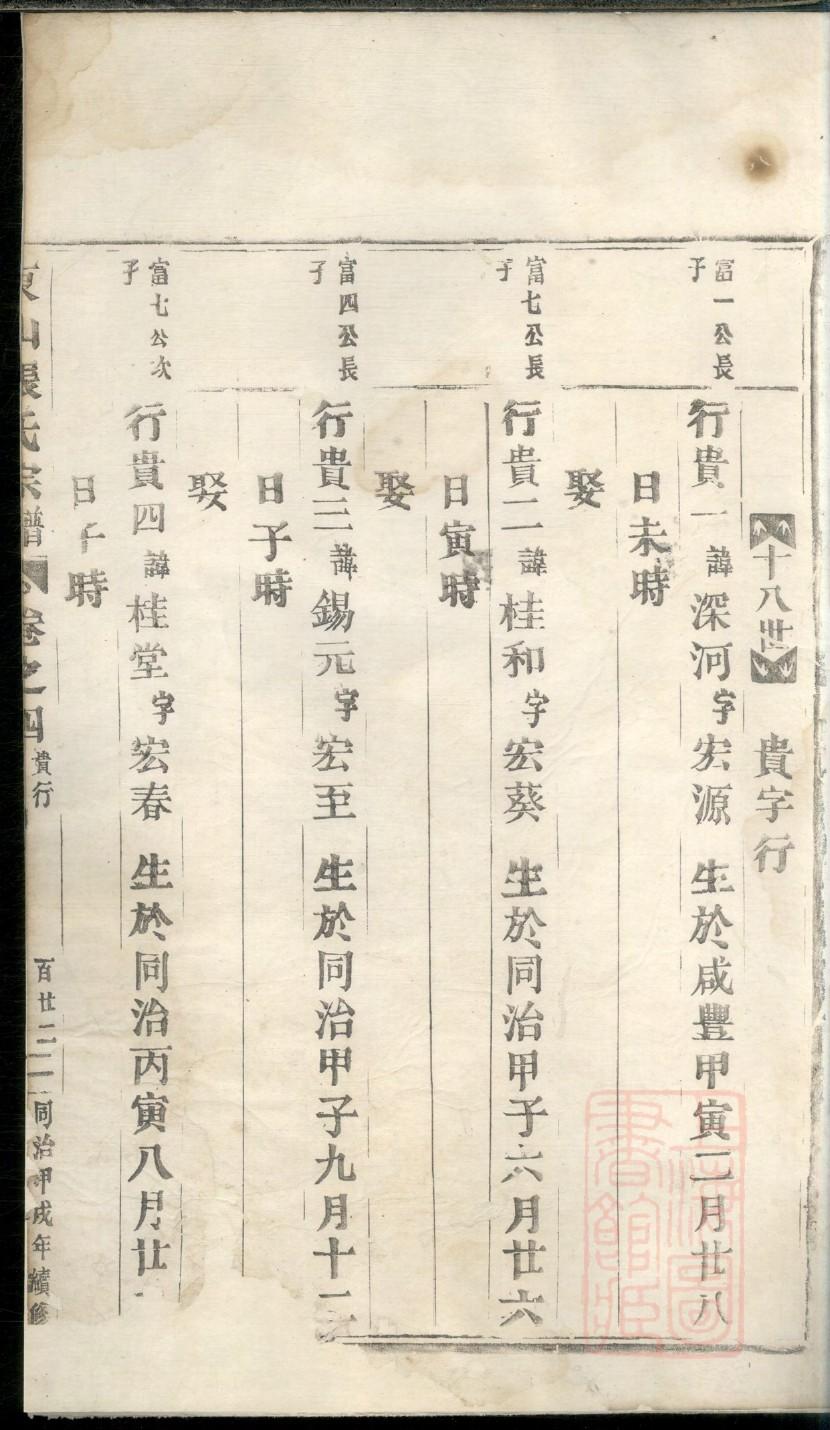 十八世
貴字行
富一公長
子
行貴一諱深河字宏源 生於咸豐甲寅二月廿八
日未時
娶
富七公長
子
行貴二諱桂和字宏葵 生於同治甲子六月廿六
日寅時
娶
富四公長
子
行貴三諱錫元字宏至 生於同治甲子九月十二
日子時
娶
富七公次
子
行貴四諱桂堂字宏春 生於同治丙寅八月廿
日子時
東山張氏宗譜 卷之四 貴行 百廿二 同治甲戌年續修